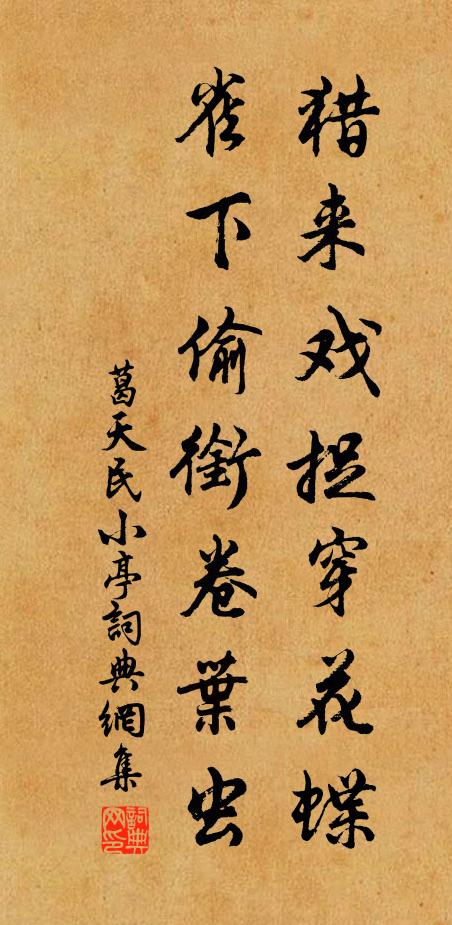 猎来戏捉穿花蝶
雀下偷銜卷葉虫
葛天民小亭詞典網集
詞典网印